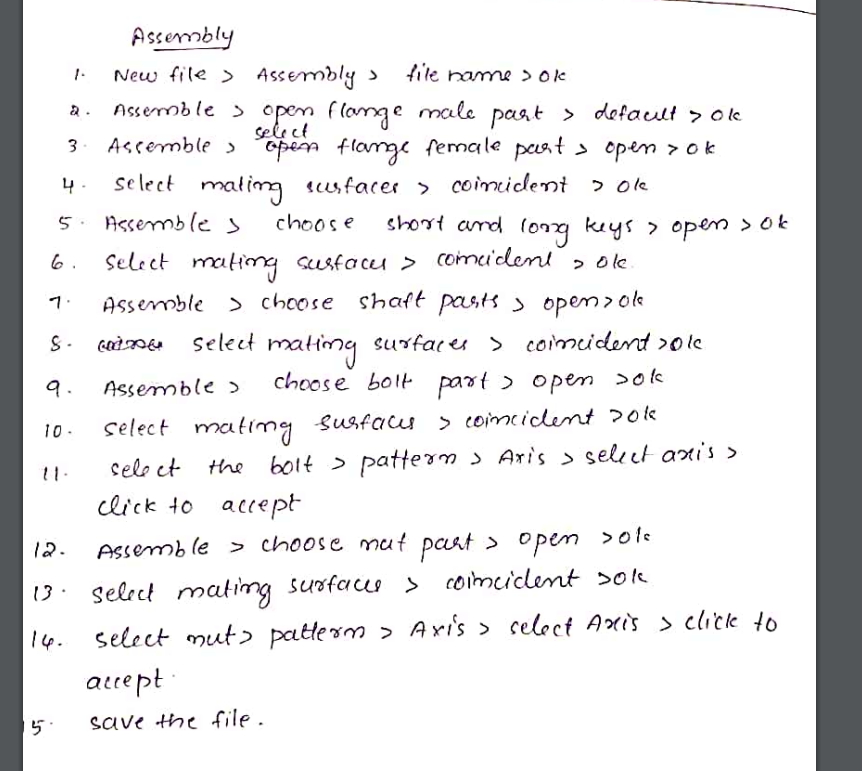 Assembly
1. New file > Assembly > file name > ok
2. Assemble > open flange male part > default > ok
3. Assemble > select flange female part > open > ok
4. select mating surfaces > coincident > ok
5. Assemble > choose short and long keys > open > ok
6. Select mating surfaces > coincident > ok.
7. Assemble > choose shaft parts > open > ok
8. select mating surfaces > coincident > ok
9. Assemble > choose bolt part > open > ok
10. select mating surfaces > coincident > ok
11. select the bolt > pattern > Axis > select axis >
click to accept
12. Assemble > choose nut part > open > ok
13. select mating surfaces > coincident > ok
14. select nut > pattern > Axis > select Axis > click to
accept.
15. save the file.